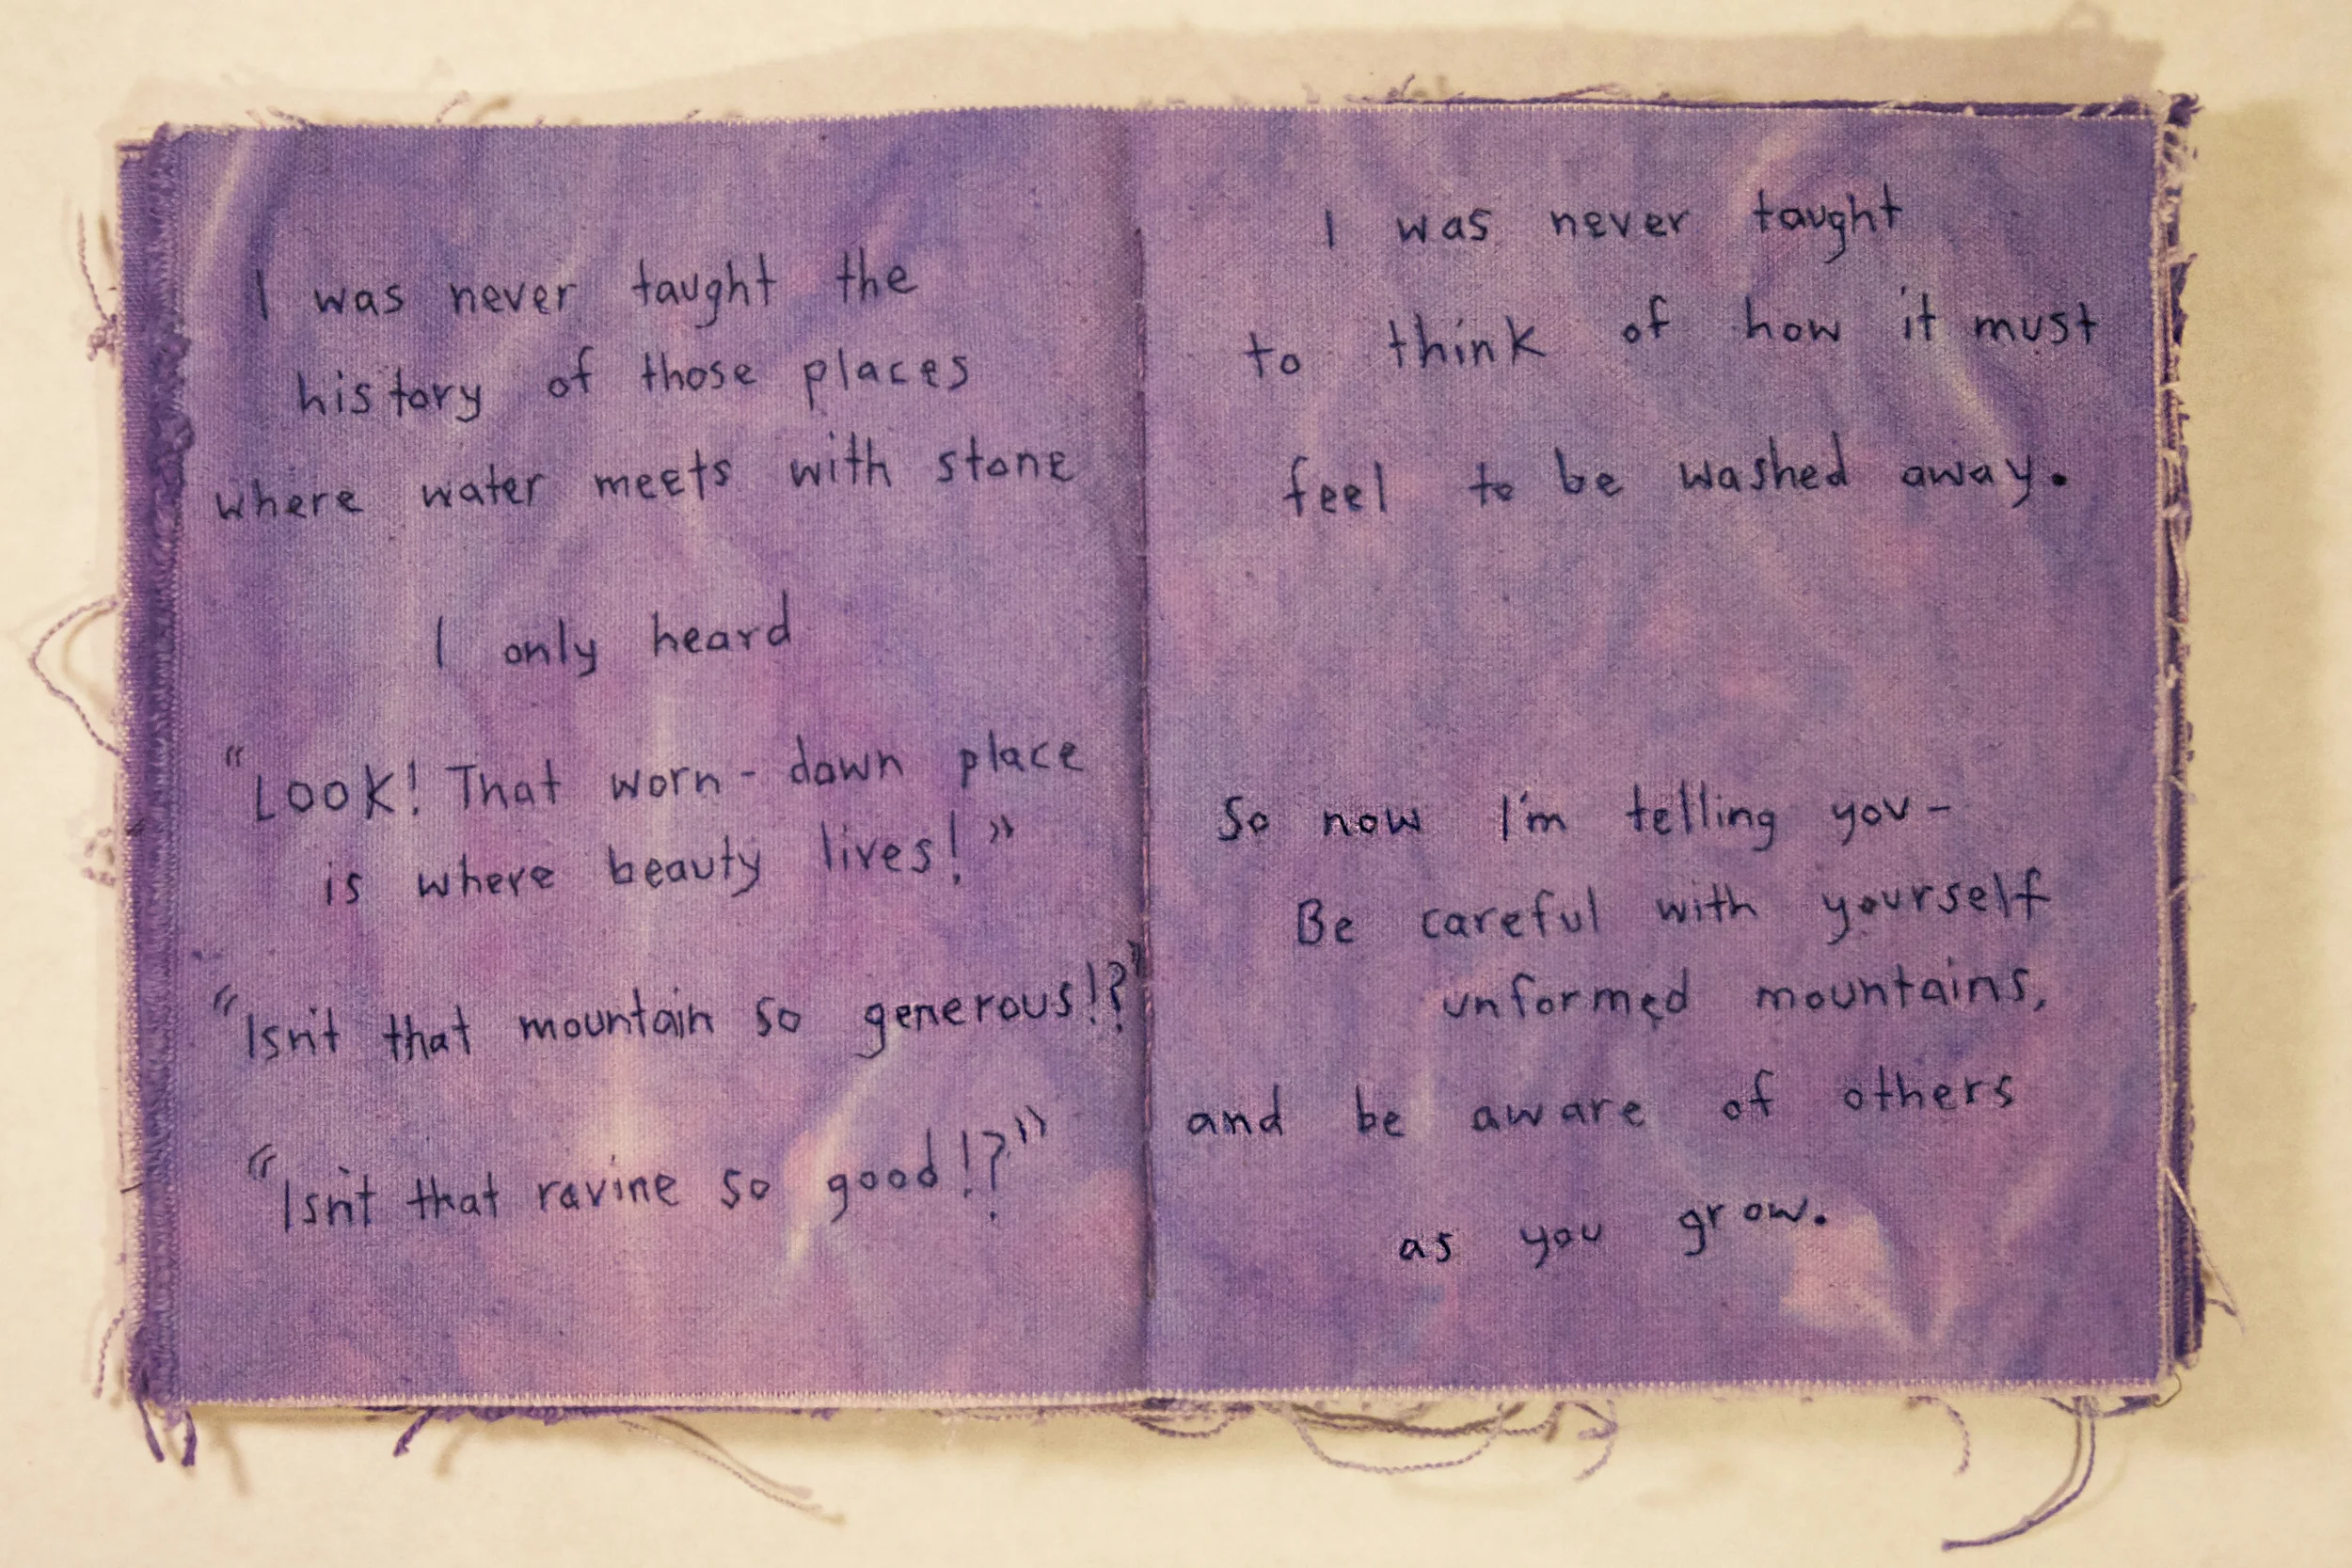 I was never taught the
history of those places
where water meets with stone
I only heard
"Look! That worn-down place
is where beauty lives!"
"Isn't that mountain so generous!?"
"Isn't that ravine so good!?"
I was never taught
to think of how it must
feel to be washed away.
So now I'm telling you-
Be careful with yourself
unformed mountains,
and be aware of others
as you grow.